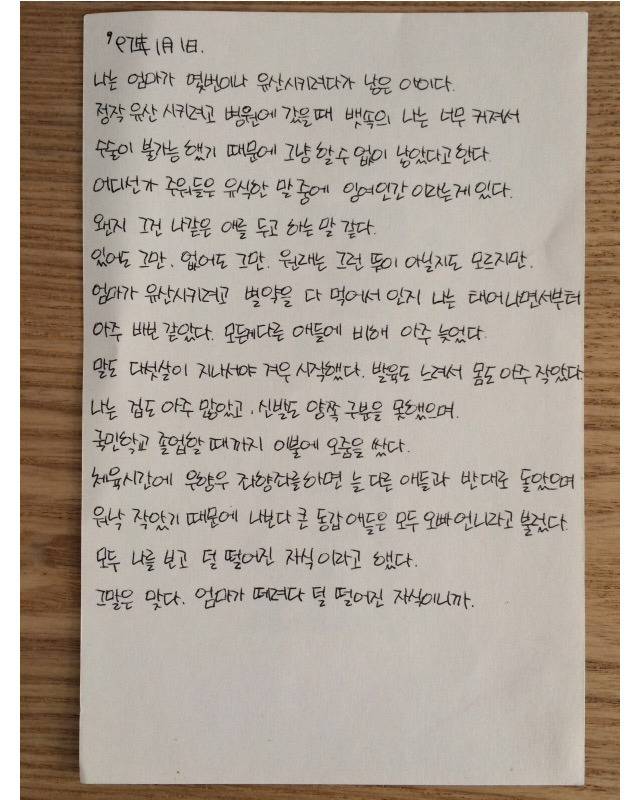 '97年 1月 1日.
나는 엄마가 몇번이나 유산시키려다가 낳은 아이다.
정작 유산 시키려고 병원에 갔을때 뱃속의 나는 너무 커져서
수술이 불가능 했기 때문에 그냥 할수 없이 낳았다고 한다.
어디선가 주워들은 유식한 말 중에 잉여인간 이라는게 있다.
왠지 그건 나같은 애를 두고 하는 말 같다.
있어도 그만. 없어도 그만. 원래는 그런 뜻이 아닐지도 모르지만.
엄마가 유산시키려고 별약을 다 먹어서 인지 나는 태어나면서부터
아주 바보 같았다. 모든게 다른 애들에 비해 아주 늦었다.
말도 다섯살이 지나서야 겨우 시작했다. 발육도 느려서 몸도 아주 작았다.
나는 겁도 아주 많았고, 신발도 양쪽 구분을 못했으며.
국민학교 졸업할 때까지 이불에 오줌을 쌌다.
체육시간에 우향우 좌향좌를하면 늘 다른 애들과 반대로 돌았으며
워낙 작았기 때문에 나보다 큰 동갑 애들은 모두 오빠 언니라고 불렀다.
모두 나를 보고 덜 떨어진 자식 이라고 했다.
그말은 맞다. 엄마가 떼려다 덜 떨어진 자식이니까.